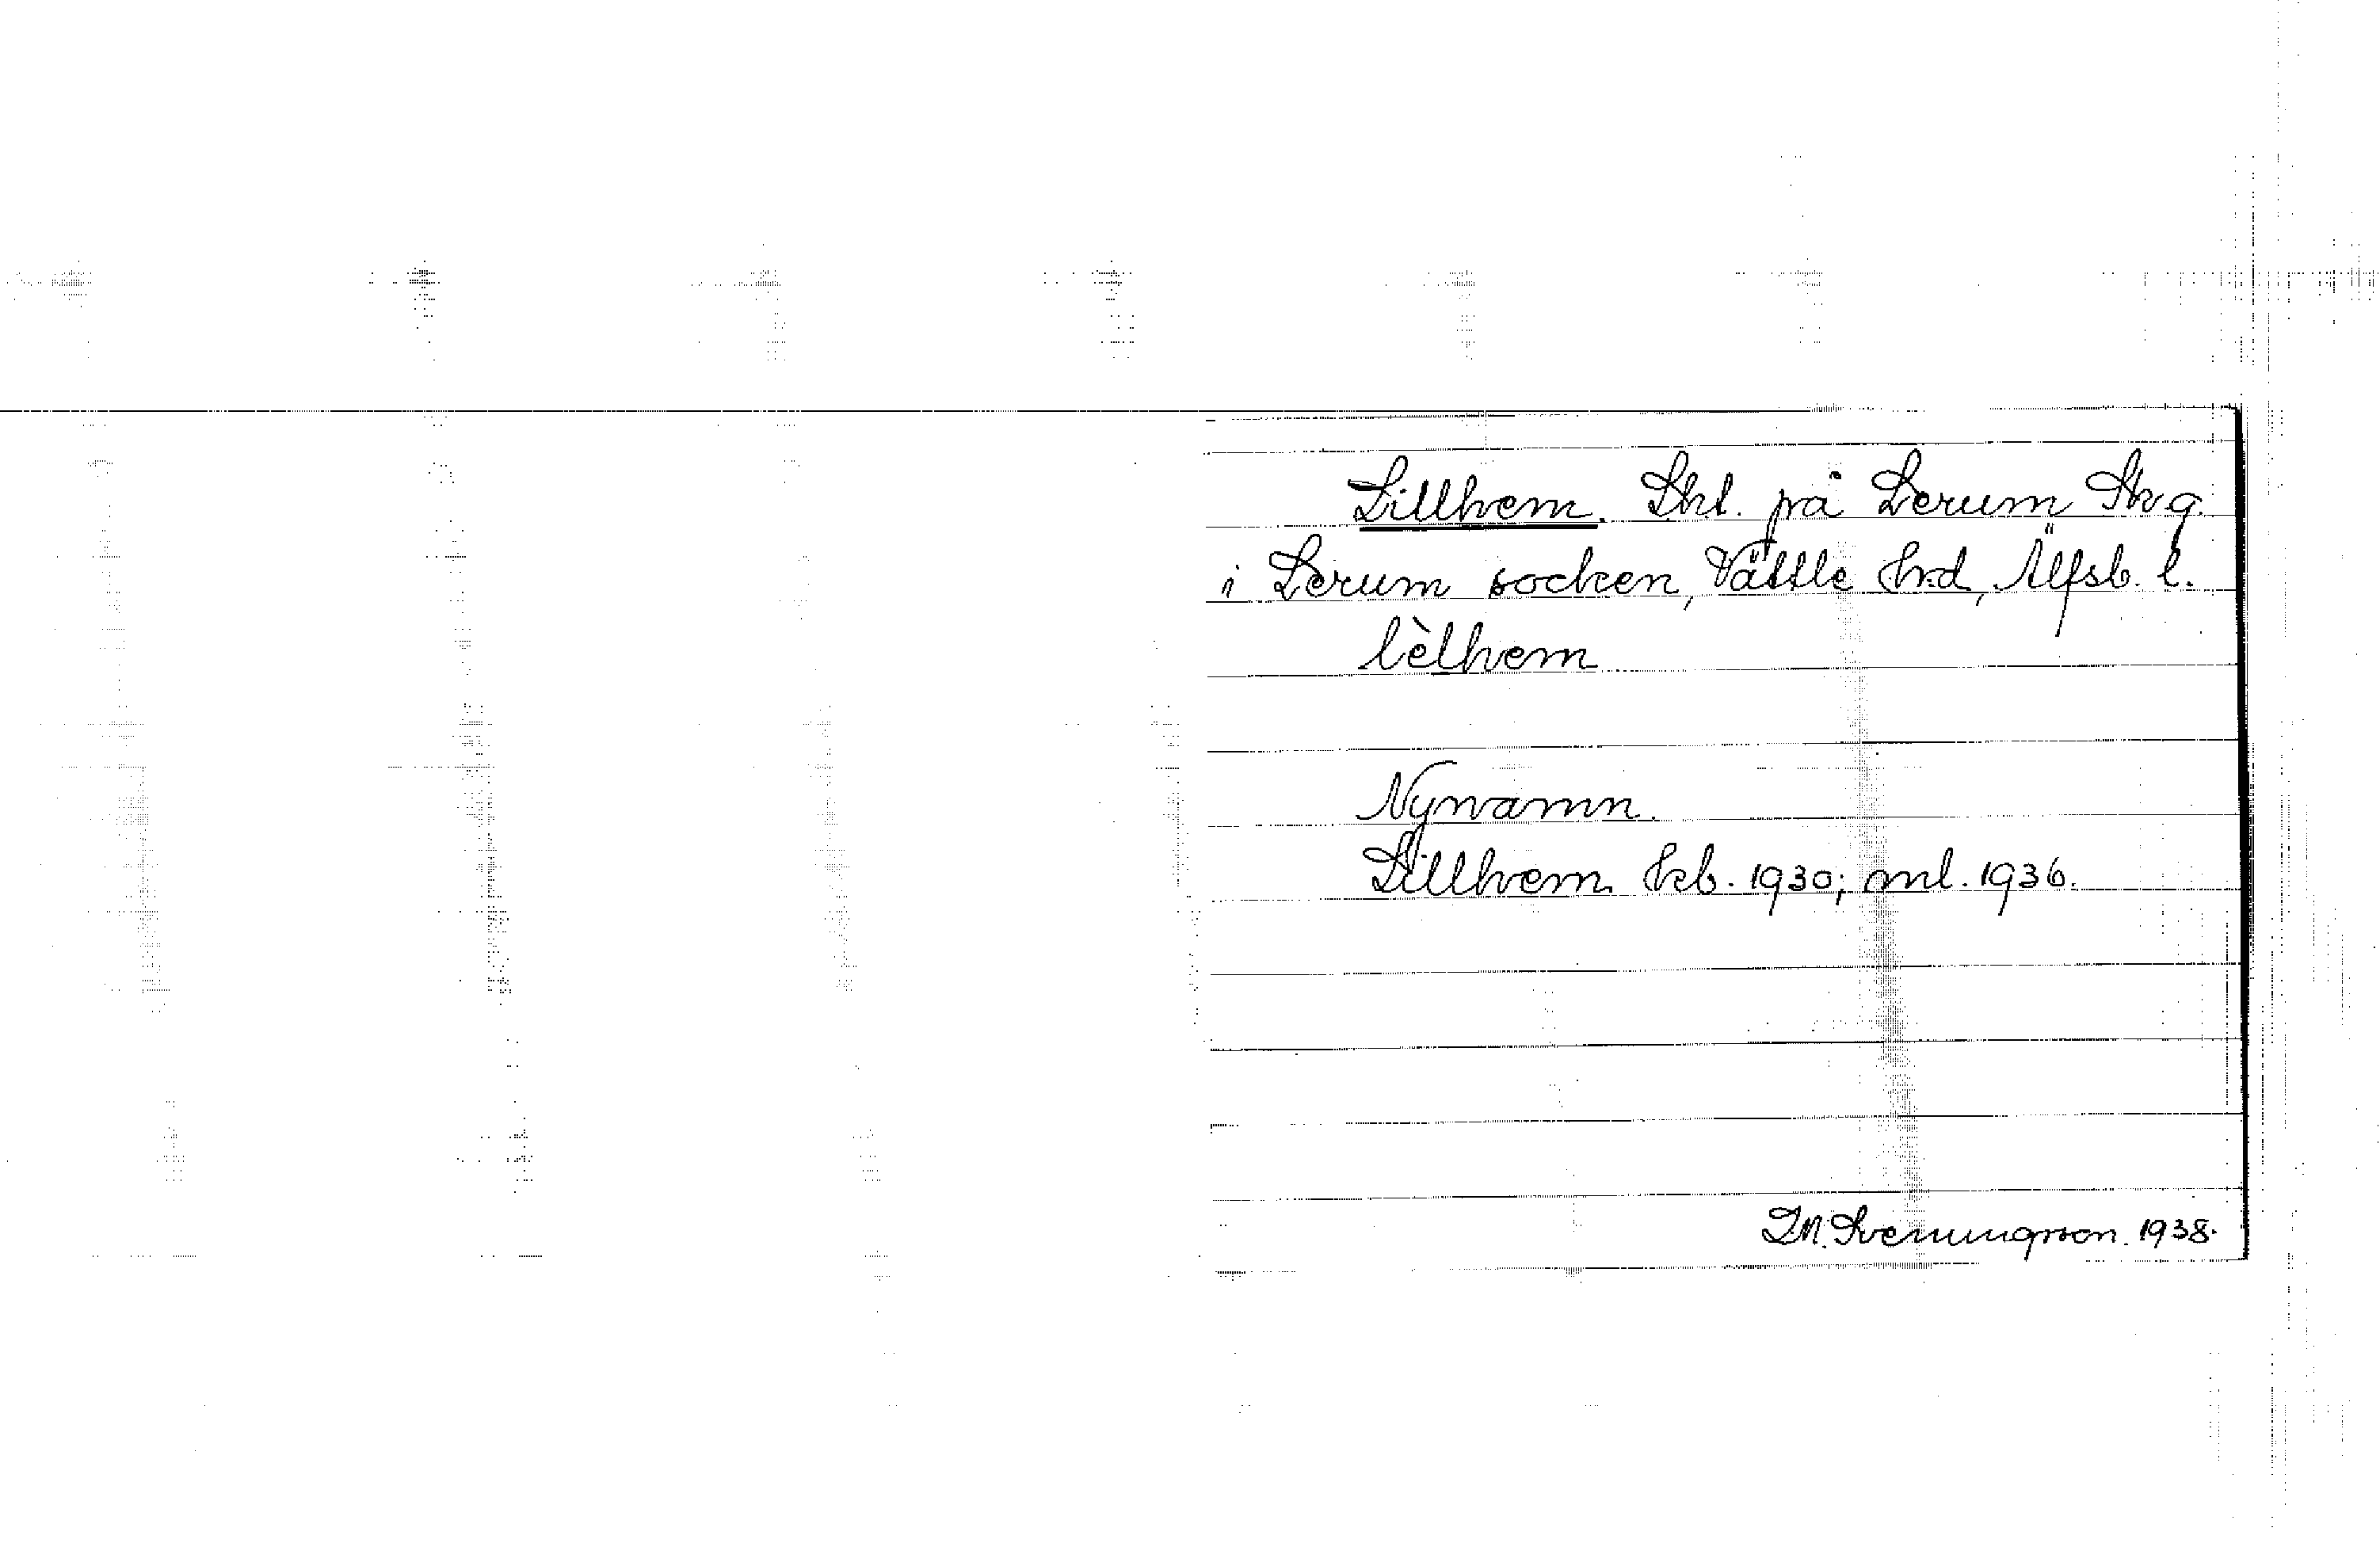 Lillhem. Shl. på Lerum Skg.
i Lerum socken, Vättle hd, Älfsb. l.
lèlhem
Nynamn.
Lillhem kb. 1930; ml. 1936.
I.M. Sveningson. 1938.